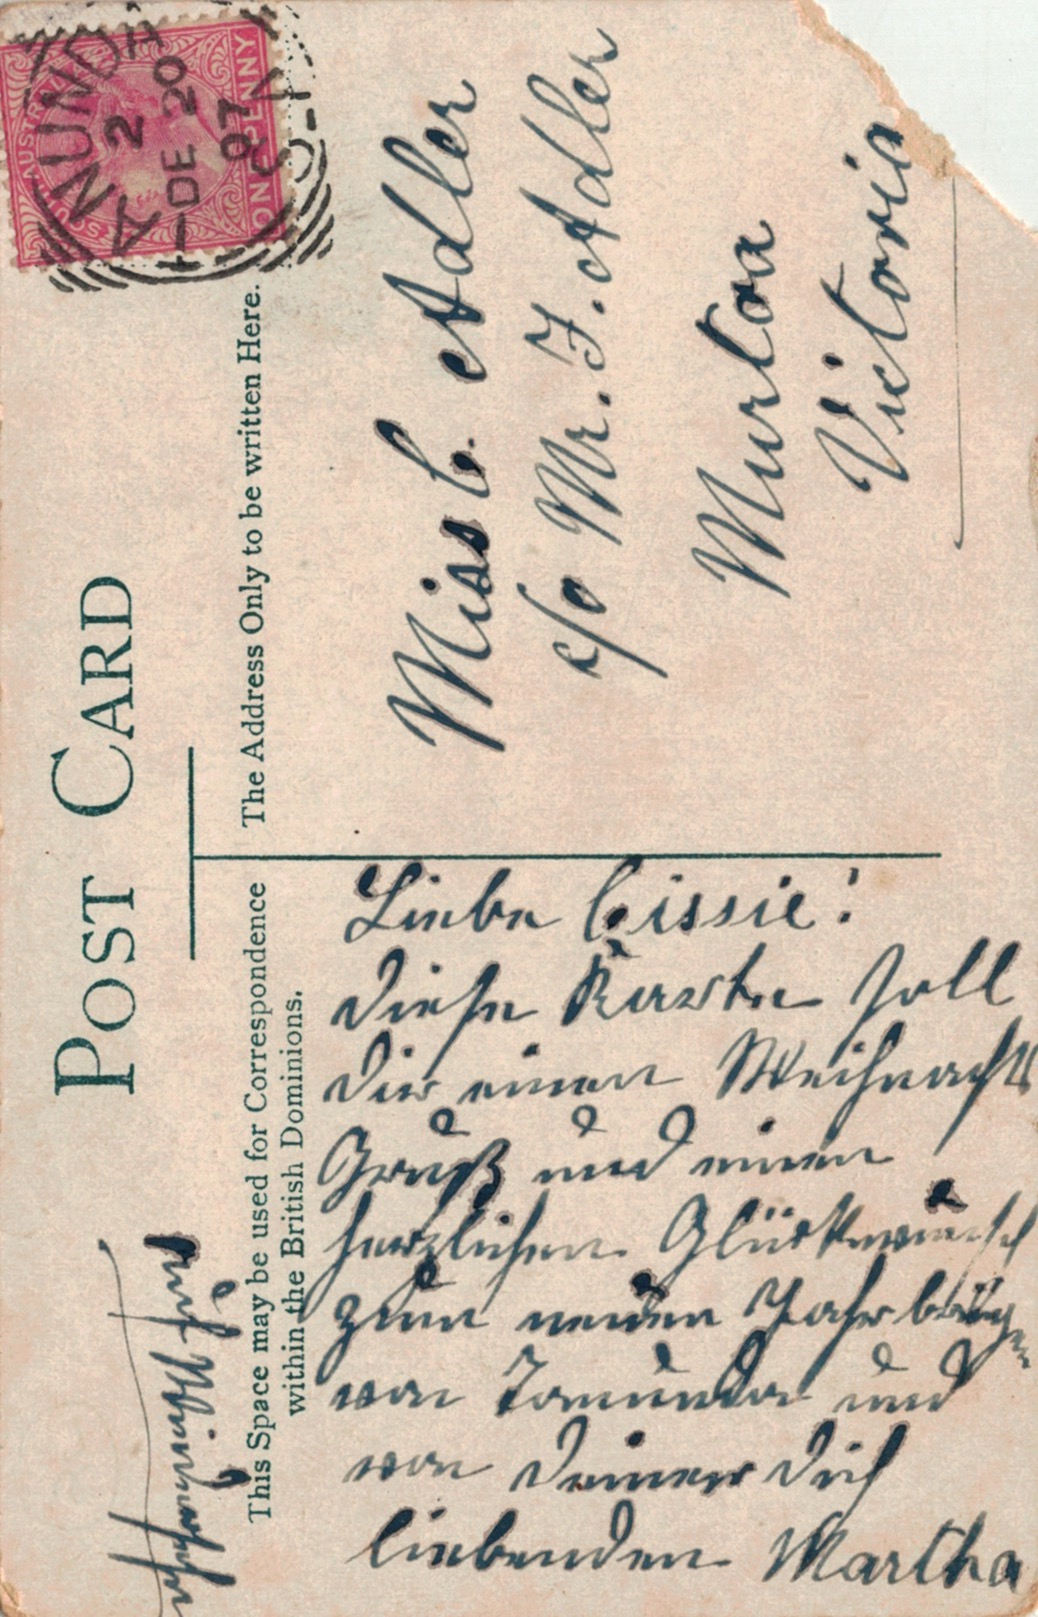 POST CARD
This Space may be used for Correspondence
within the British Dominions.
The Address Only to be written Here.
SOUTH AUSTRALIA
POSTAGE
ONE PENNY
TANUNDA
2
DE 20
07
S-A
Miss C. Adler
c/o Mr. F. Adler
Murtoa
Victoria
Liebe Cissie!
Diese Karte soll
Dir einen Weihnachts
Gruß und einen
herzlichen Glückwunsch
zum neuen Jahr bringen
von Tanunda und
von Deiner Dich
liebenden Martha